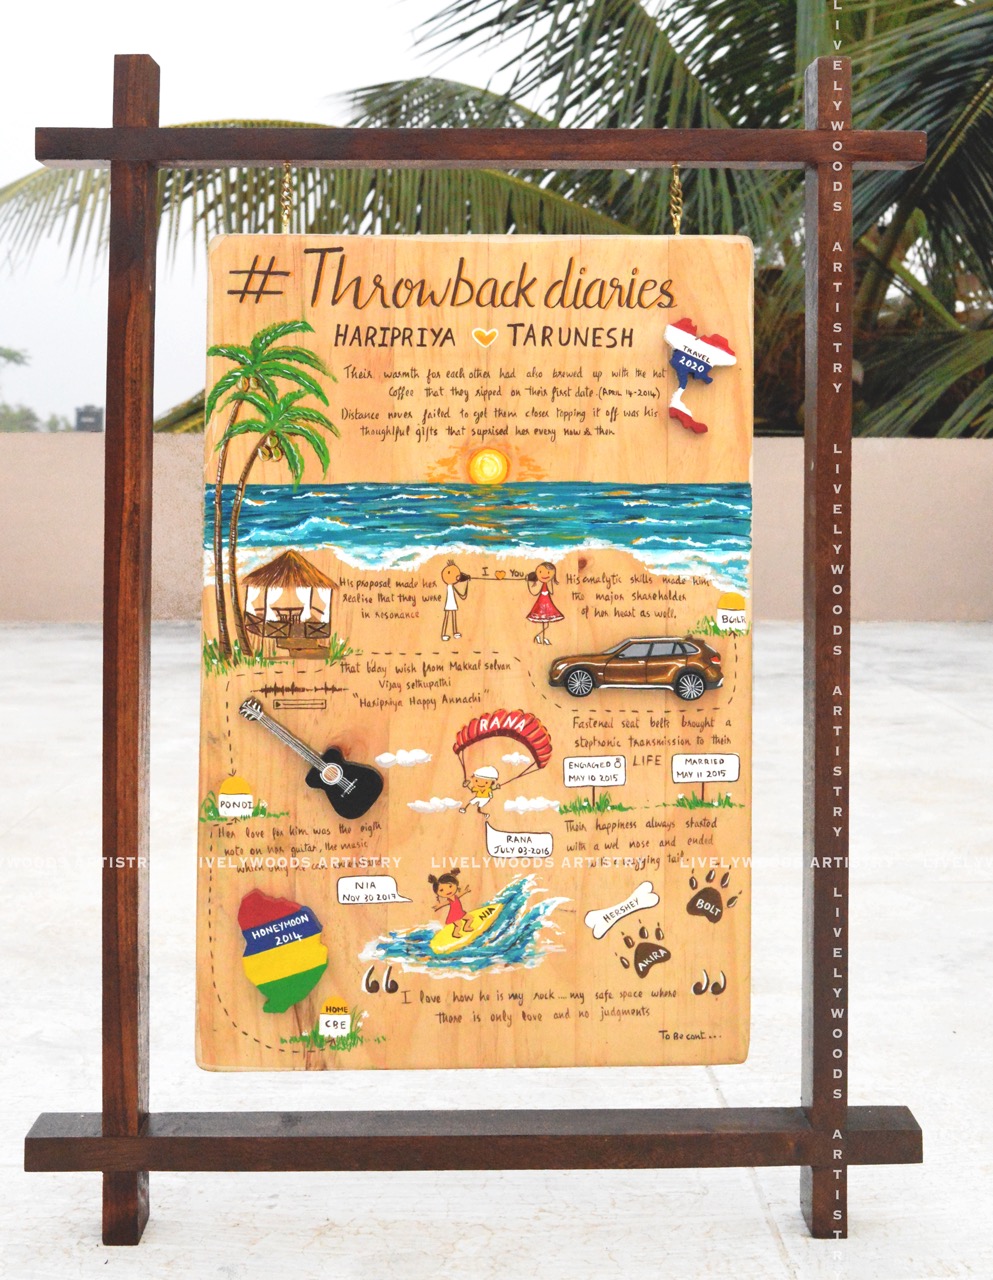 # Throwback diaries
HARIPRIYA TARUNESH
TRAVEL
2020
Their warmth for each other had also brewed up with the hot
Coffee that they sipped on their first date. (APRIL 14-2014)
Distance never failed to get them closer topping it off was his
thoughtful gifts that suprised her every now & then
I YOU
His proposal made her
realise that they were
in resonance
His analytic skills made him
the major shareholder
of her heart as well.
BGLR
that b'day wish from Makkal selvan
Vijay sethupathi
"Haripriya Happy Annachi"
Fastened seat belts brought a
steptronic transmission to their
LIFE
RANA
ENGAGED
MAY 10 2015
MARRIED
MAY 11 2015
PONDI
Her love for him was the eigth
note on her guitar, the music
which only he can
RANA
JULY 03-2016
Their happiness always started
with a wet nose and ended
with a wagging tail
LIVELYWOODS ARTISTRY LIVELYWOODS ARTISTRY LIVELYWOODS ARTISTRY
NIA
NOV 30 2017
NIA
HERSHEY
BOLT
AKIRA
HONEYMOON
2014
HOME
CBE
“ I love how he is my rock....my safe space where ”
there is only love and no judgments
To Be cont...
LIVELYWOODS ARTISTRY LIVELYWOODS ARTISTRY LIVELYWOODS ARTISTRY